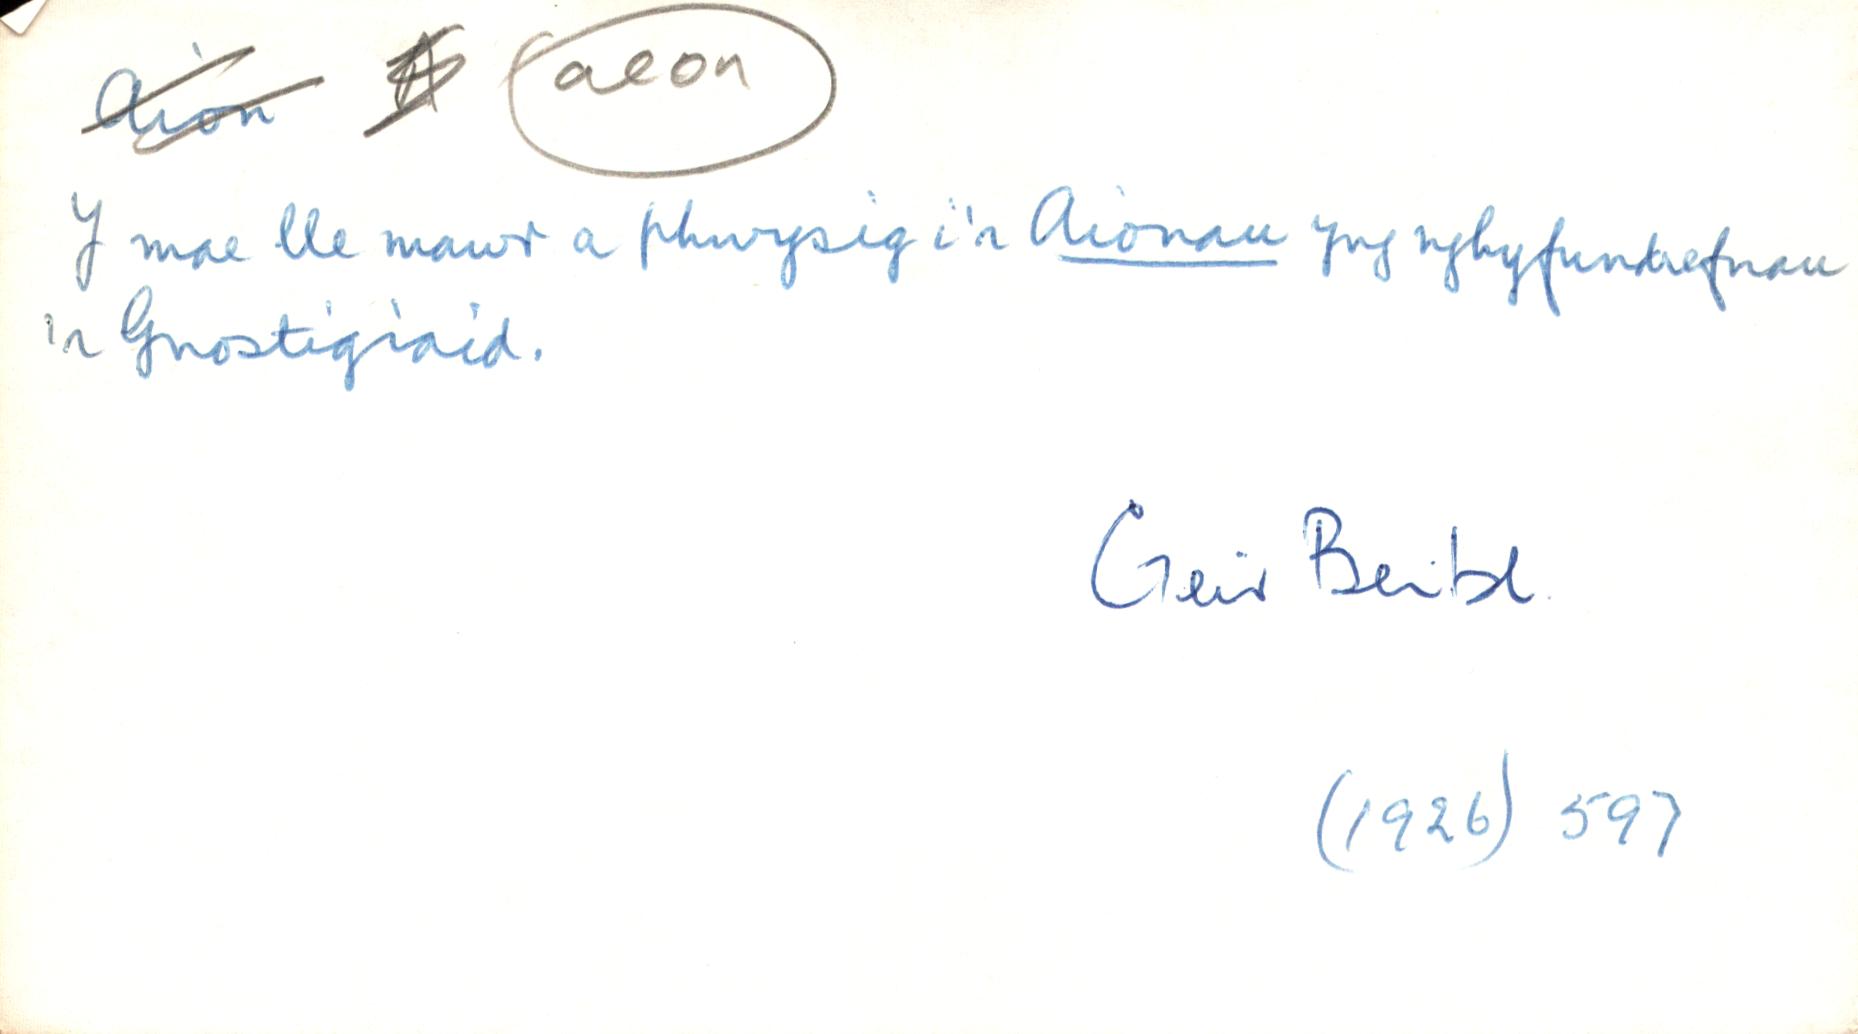 Aion A aeon
Y mae lle mawr a phwysig i'r Aionau yng nghyfundrefnau
i'r Gnostigiaid.
Geir Beibl.
(1926) 597